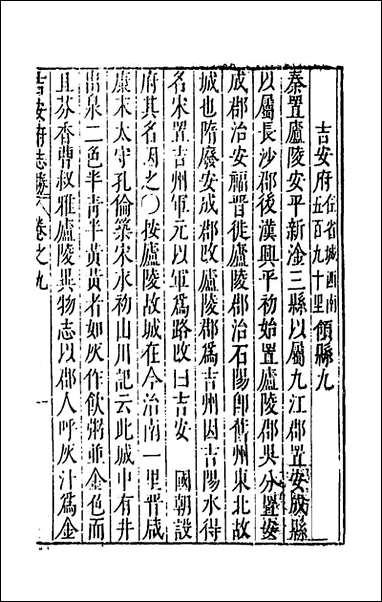 吉安府在省城西南五百九十里領縣九
秦置廬陵安平新淦三縣以屬九江郡置安成縣
以屬長沙郡後漢興平初始置廬陵郡吳分置安
成郡治安福晉徙廬陵郡治石陽卽舊州東北故
城也隋廢安成郡改廬陵郡爲吉州因吉陽水得
名宋置吉州軍元以軍爲路改曰吉安 國朝設
府其名因之〇按廬陵故城在今治南一里晉咸
康末太守孔倫築宋永初山川記云此城中有井
出泉二色半青半黃黃者如灰作飲粥並金色而
且芬香曹叔雅廬陵異物志以郡人呼灰汁爲金
吉安府志勝 卷之九 一